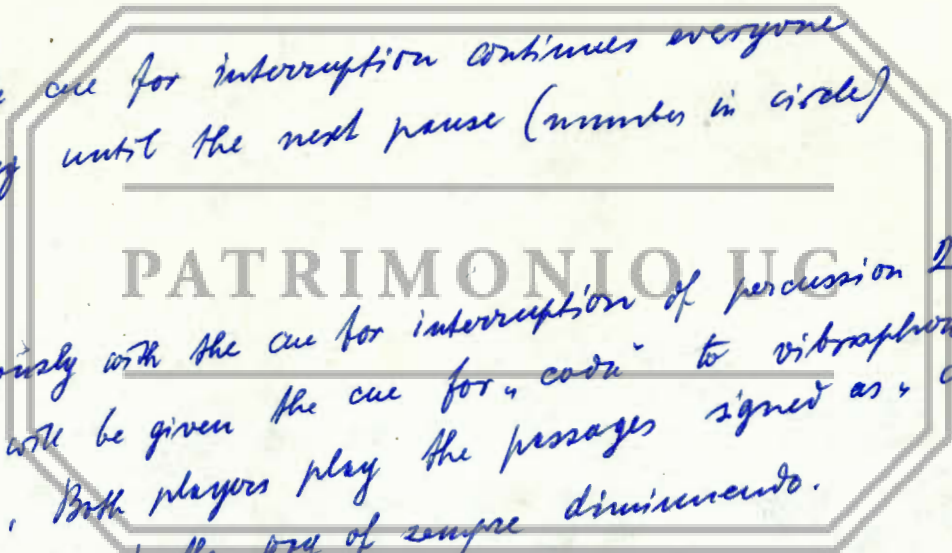 cue for interruption continues everyone
until the next pause (number in circle)
PATRIMONIO UC
with the cue for interruption of percussion 2
will be given the cue for „coda“ to
. Both players play the passages signed as „
of sempre diminuendo.